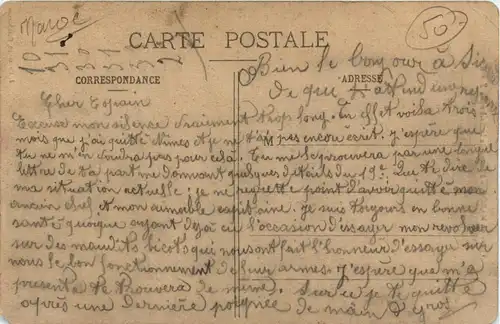 Maroc
50
CARTE POSTALE
CORRESPONDANCE
ADRESSE
Bien le bonjour à
de qui j'attend une
Cher Copain
Excuse mon silence vraiment trop long. En effet voila trois
mois que j'ai quitté Nimes et je ne t'ai pas encore écrit. J'espère que
tu ne m'en voudra pas pour cela. Tu me le prouvera par une longue
lettre de ta part me donnant quelques détails du 19e. Que te dire de
ma situation actuelle: je ne regrette point d'avoir quitté mon
ancien chef et mon aimable capitaine. Je suis toujours en bonne
santé quoique ayant déjà eu l'occasion d'essayer mon revolver
sur des maudits bicots qui nous ont fait l'honneur d'essayer sur
nous le bon fonctionnement de leurs armes. J'espère que m'a
présente te trouvera de même. Sur ce je te quitte
après une dernière poignée de main